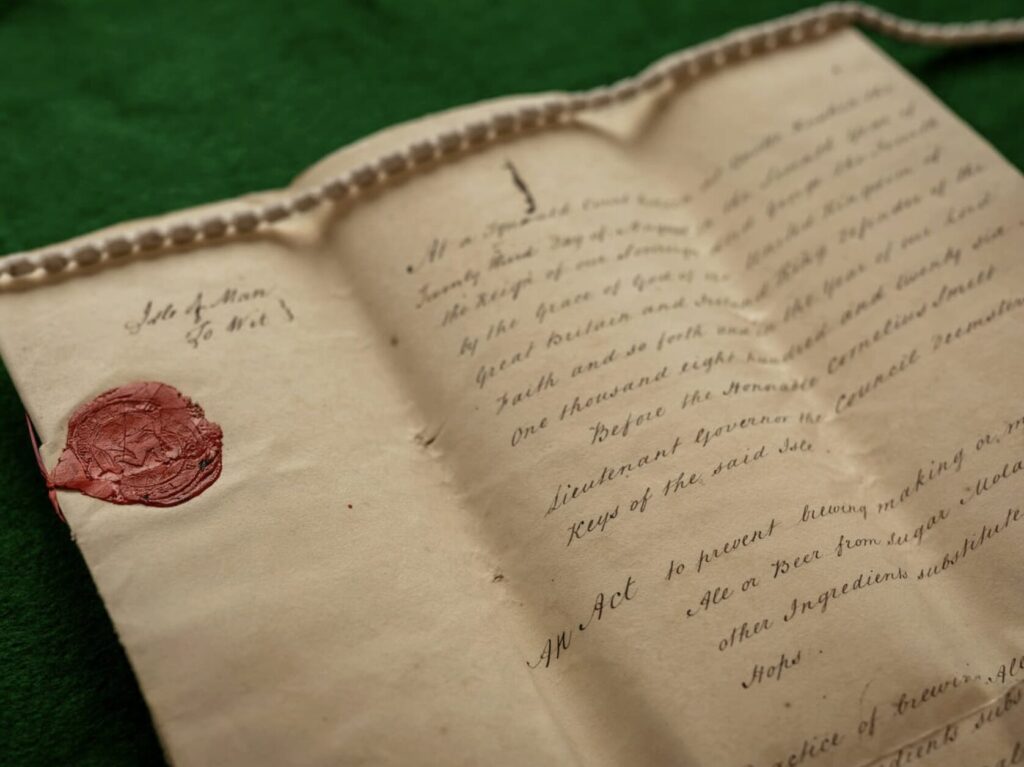 Isle of Man
To Wit
At a Tynwald Court
Twenty third Day of August in the Second Year of
the Reign of our Sovereign Lord George the Fourth
by the Grace of God of the United Kingdom of
Great Britain and Ireland King Defender of the
Faith and so forth and in the Year of our Lord
One thousand eight hundred and twenty six
Before the Honorable Cornelius Smelt
Lieutenant Governor the Council Deemsters
Keys of the said Isle
An Act to prevent brewing making or
Ale or Beer from Sugar
other Ingredients
Hops.
of brewing